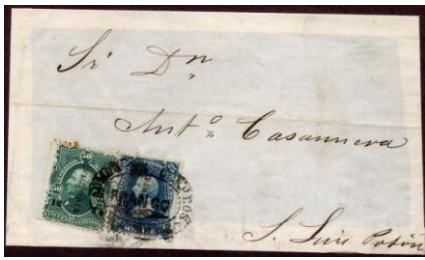 Sr Dn
Anto Casanueva
50 50
FRANCO
S. Luis Potosí